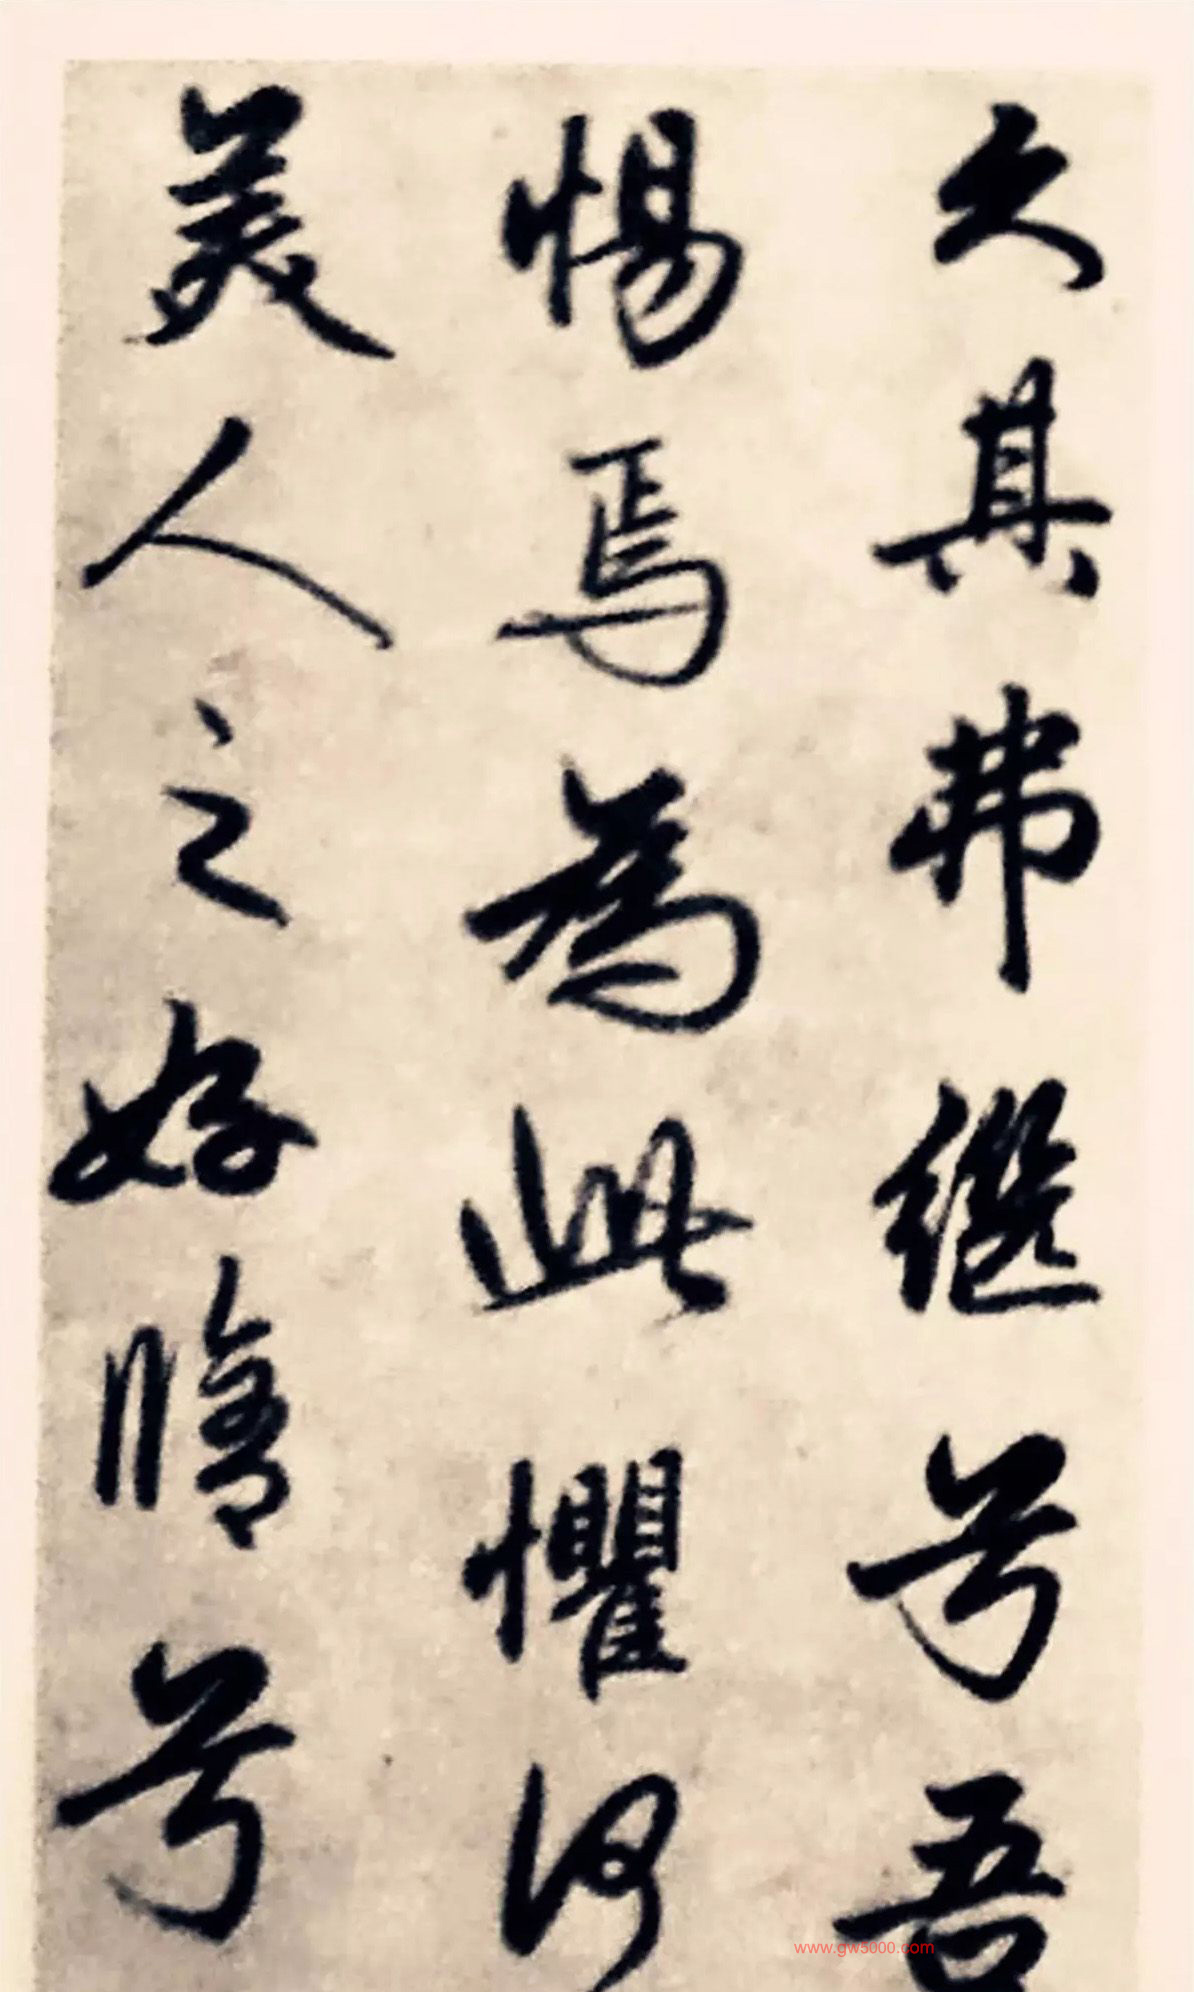 久其弗繼兮吾
惕焉為此懼何
美人之好脩兮
www.gw5000.com